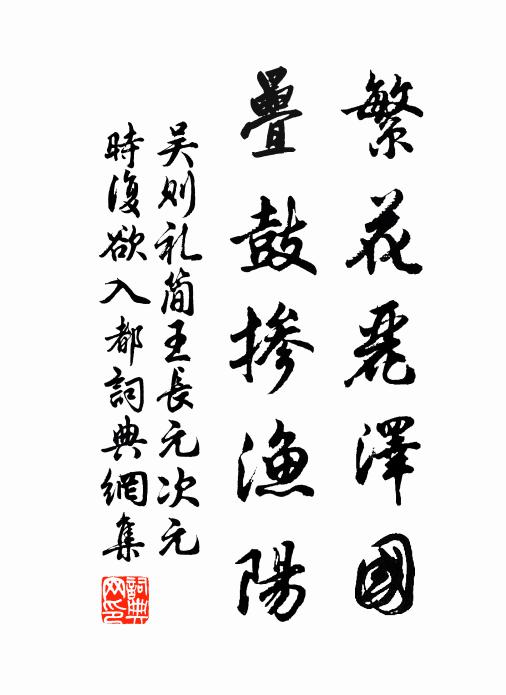 繁花麗澤國
疊鼓摻漁陽
吴则礼簡王長元次元
時復欲入都詞典網集
詞典网印